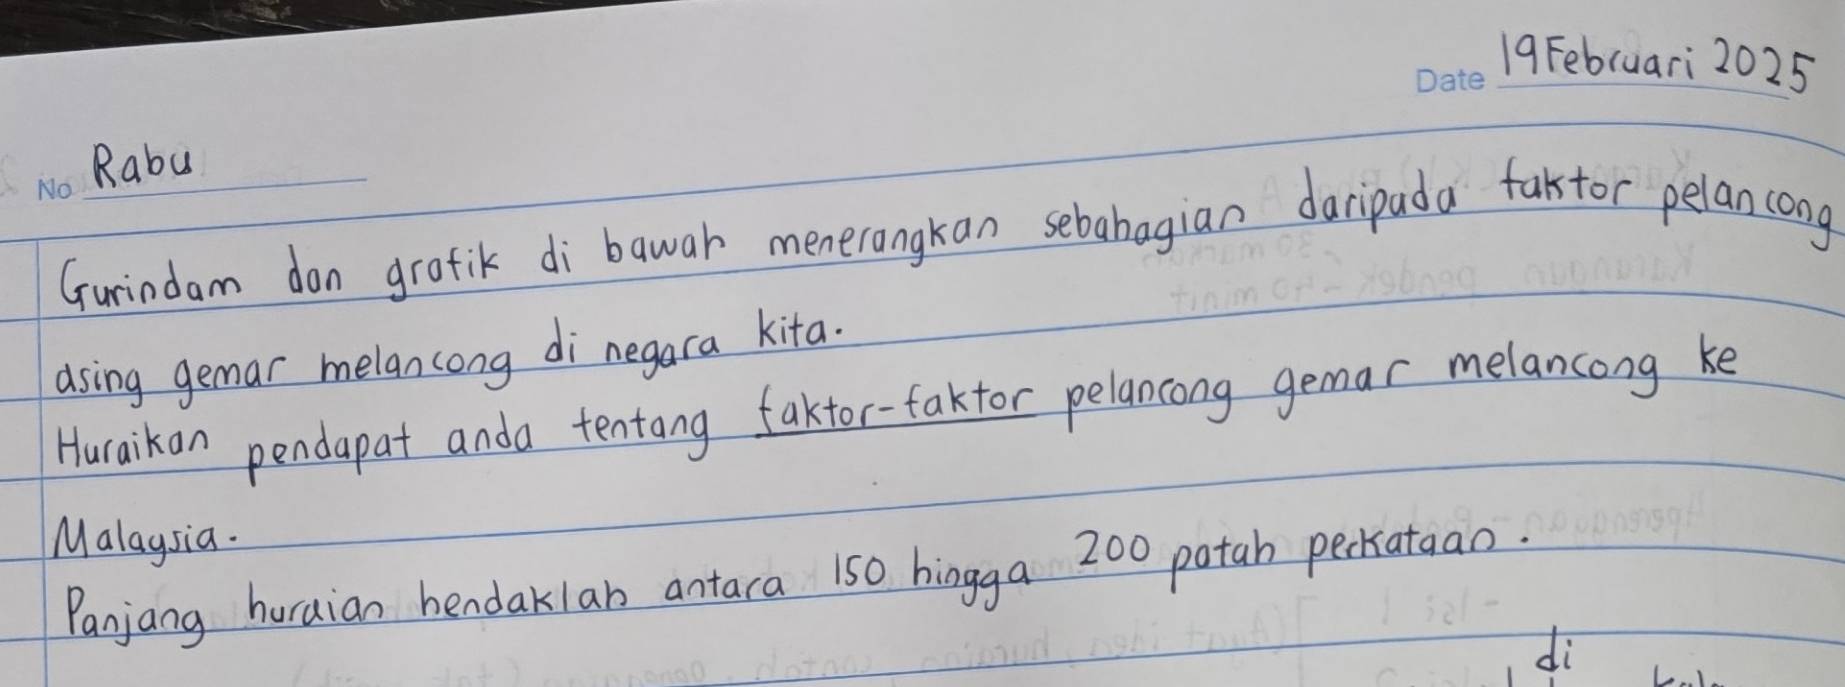 Date 19 Februari 2025
No Rabu
Gurindam dan grafik di bawah menerangkan sebahagian daripada faktor pelancong
asing gemar melancong di negara kita.
Huraikan pendapat anda tentang faktor-faktor pelancong gemar melancong ke
Malaysia.
Panjang huraian hendaklah antara 150 hingga 200 patah perkataan.
di